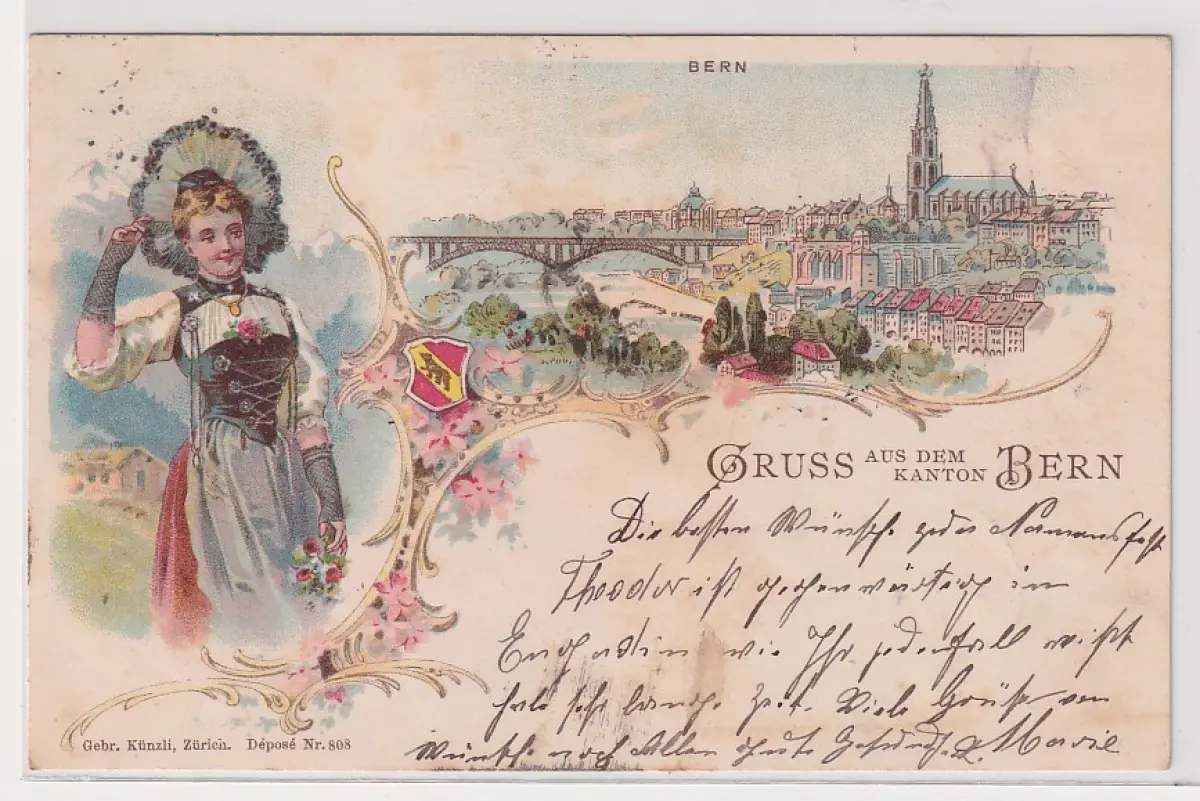 BERN
GRUSS AUS DEM KANTON BERN
Die besten Wünsche Namensfest
Theodor ist gegenwärtig im
Engadin wie Ihr jedenfall wißt
sehr lange Zeit. Viele Grüße von
Wünsche noch Allen gute Marie
Gebr. Künzli, Zürich. Déposé Nr. 808